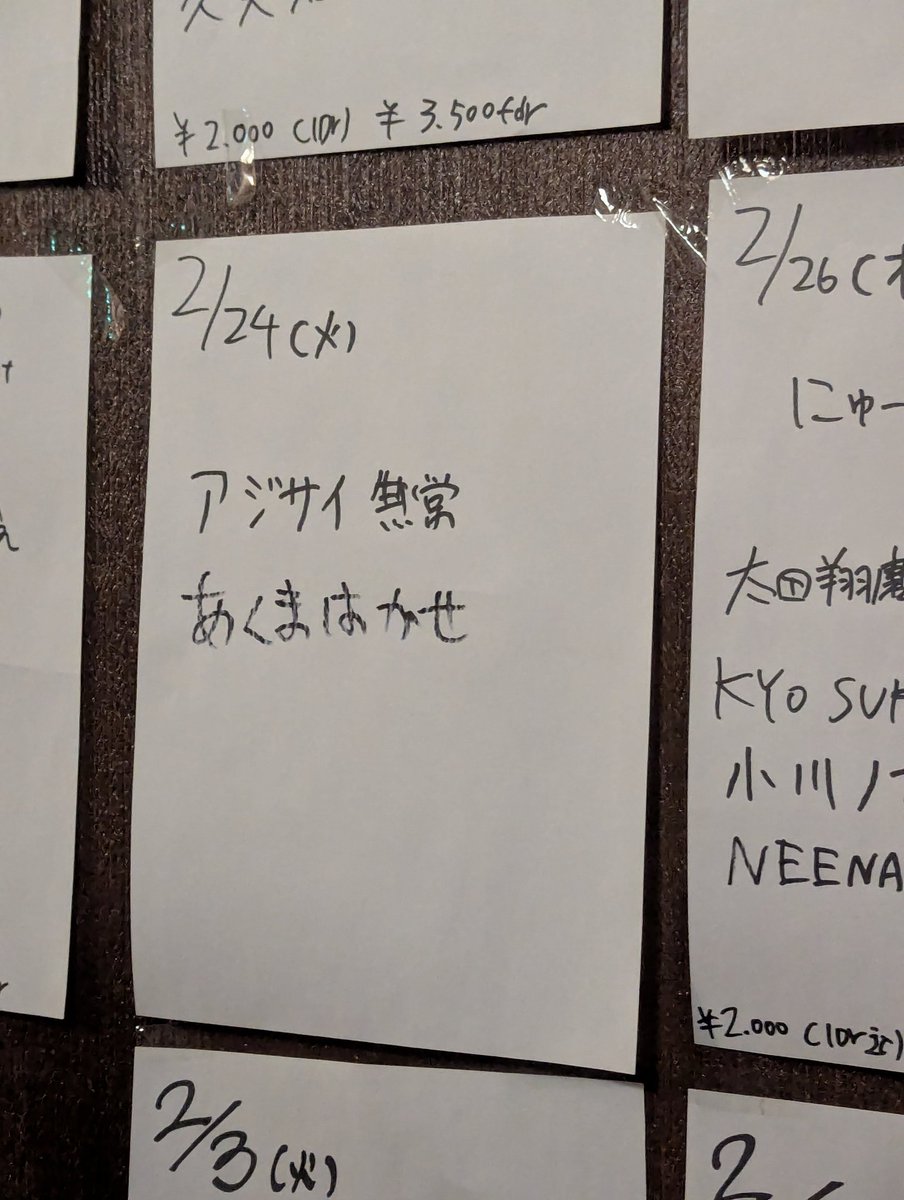 ¥2.000 (1Dr) ¥3.500fdr
2/24(火)
アジサイ無常
あくまはかせ
2/26(木
にゅー
太田翔
KYO SUK
小川ノ
NEENA
¥2.000 (1Dr込)
2/3(火)
2/